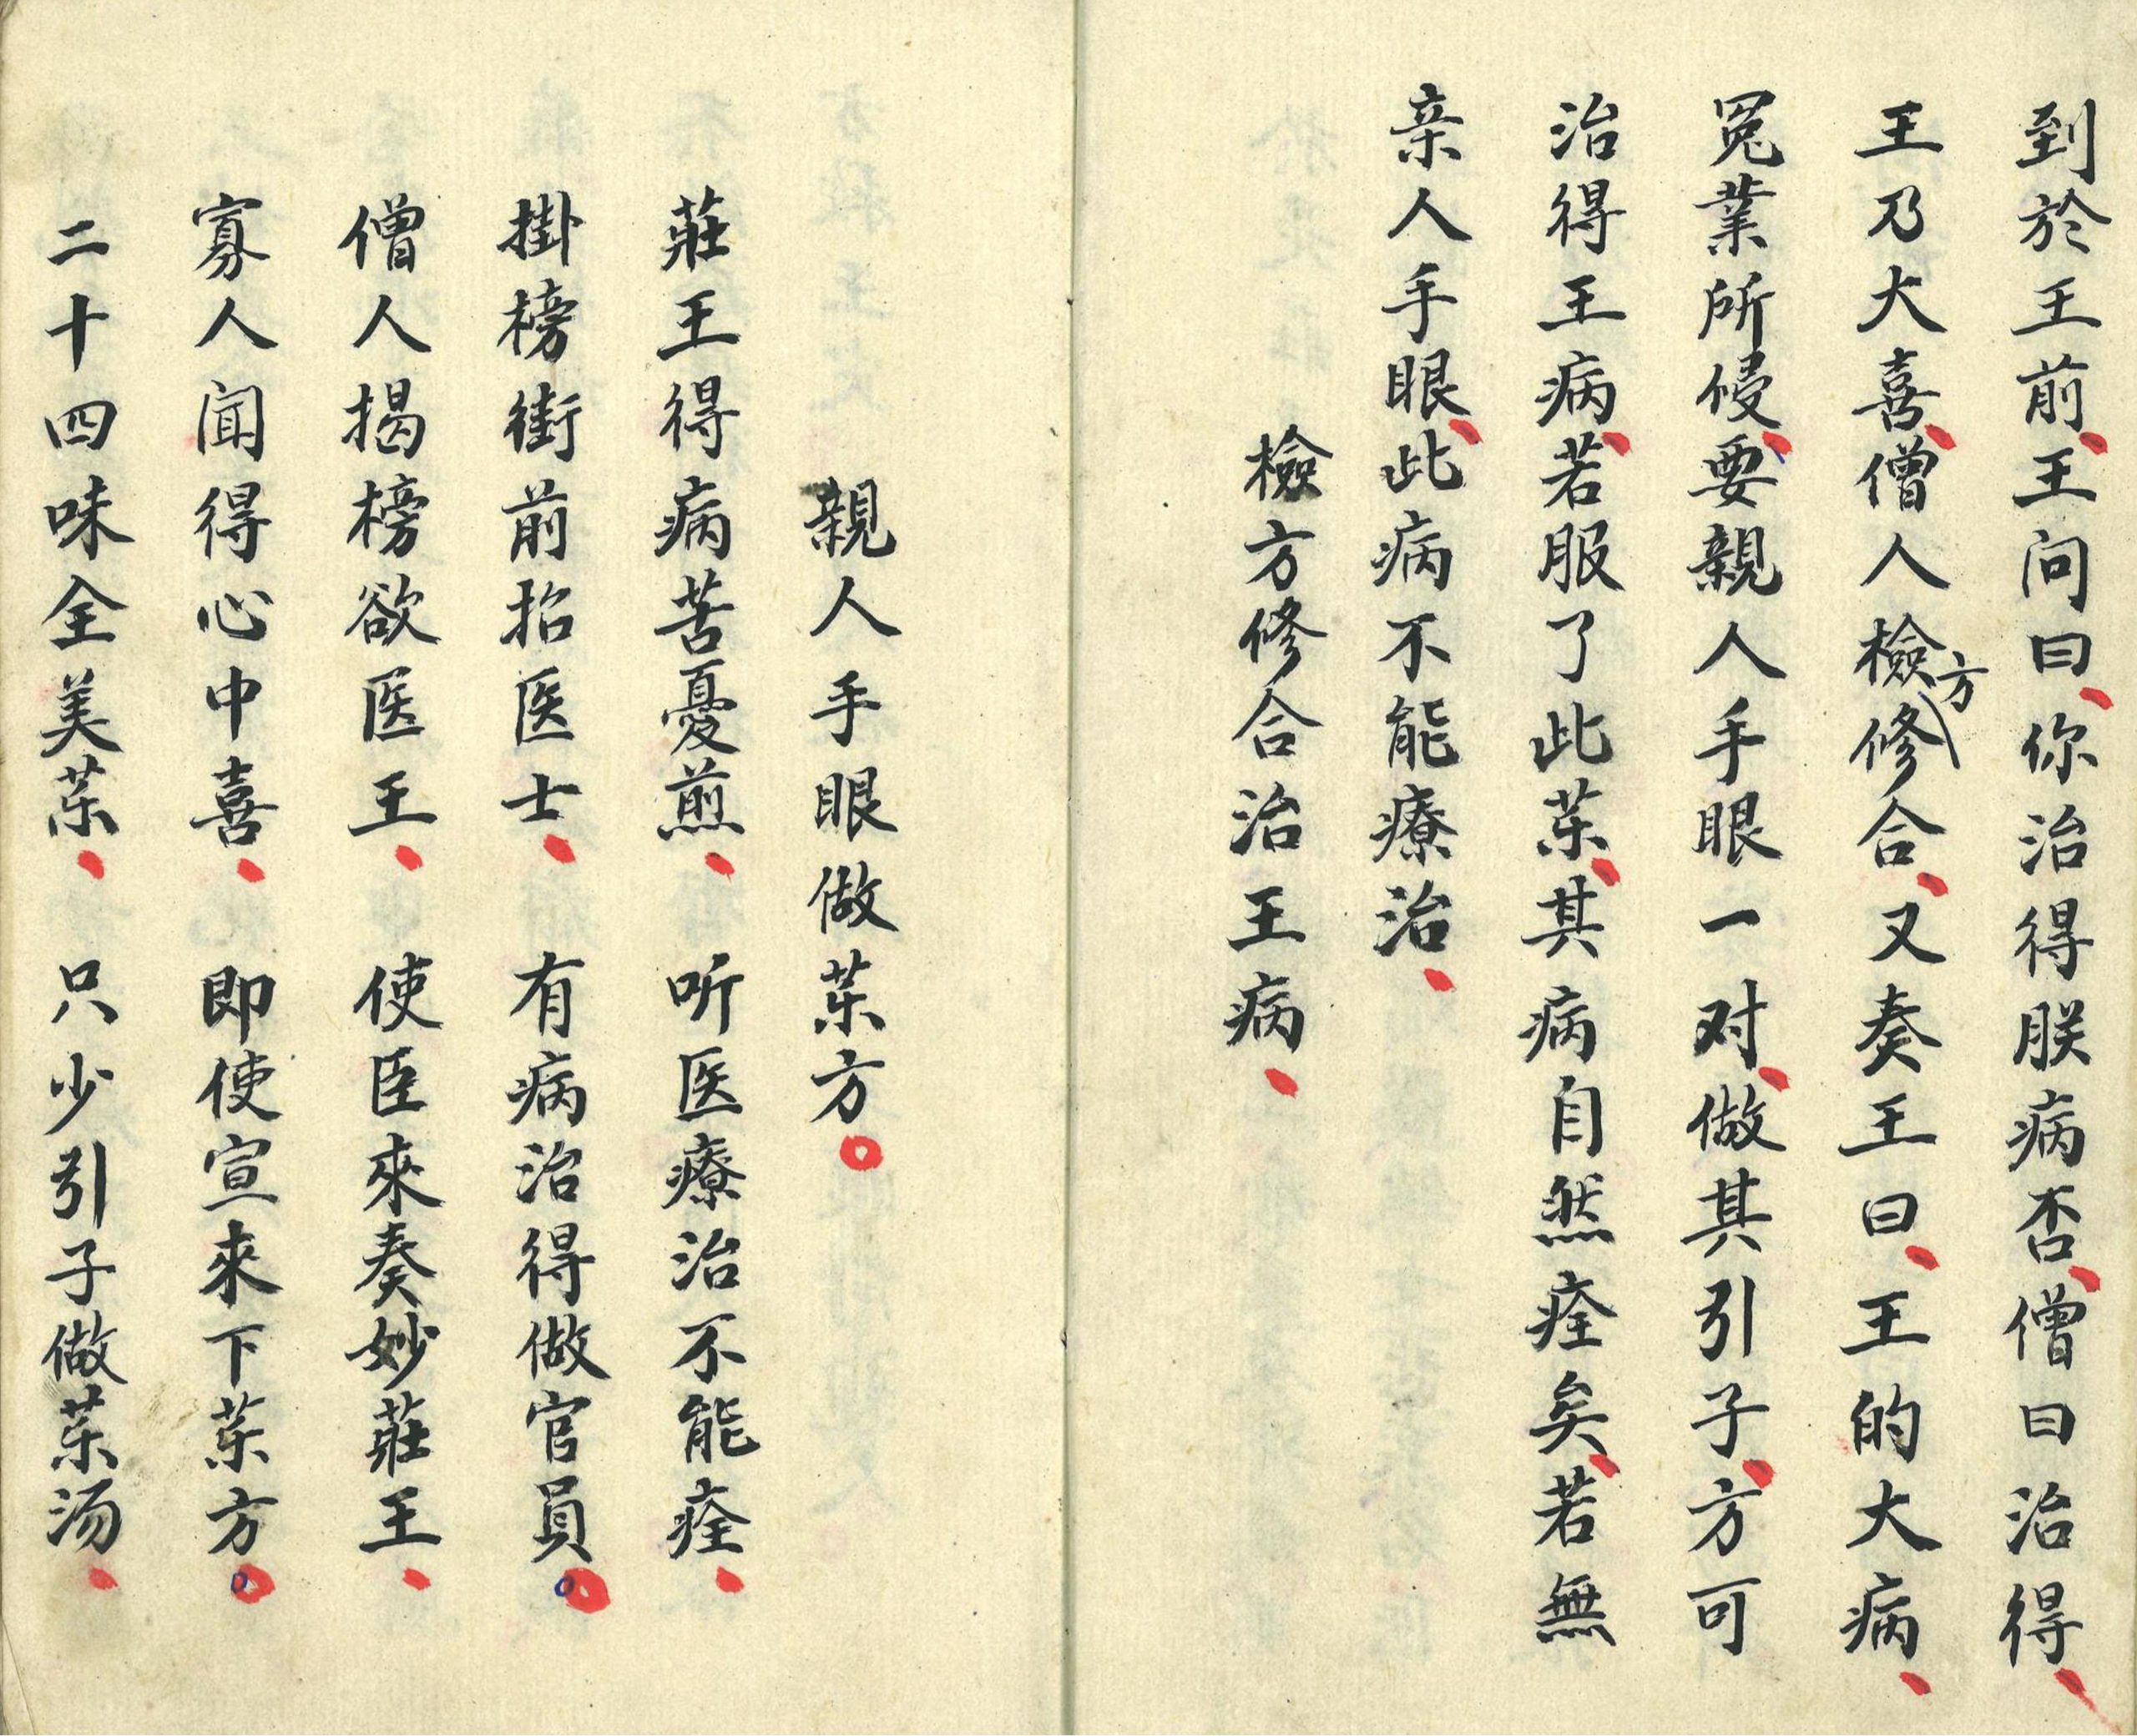 到於王前、王问曰、你治得朕病否、僧曰治得、
王乃大喜、僧人檢方修合、又奏王曰、王的大病、
冤業所侵、要親人手眼一对、做其引子、方可
治得王病、若服了此茶、其病自然痊矣、若無
亲人手眼、此病不能療治、
檢方修合治王病、
親人手眼做茶方。
莊王得病苦憂煎、听医療治不能痊、
掛榜街前招医士、有病治得做官員。
僧人揭榜欲医王、使臣來奏妙莊王、
寡人闻得心中喜、即使宣來下茶方。
二十四味全美茶、只少引子做茶汤、